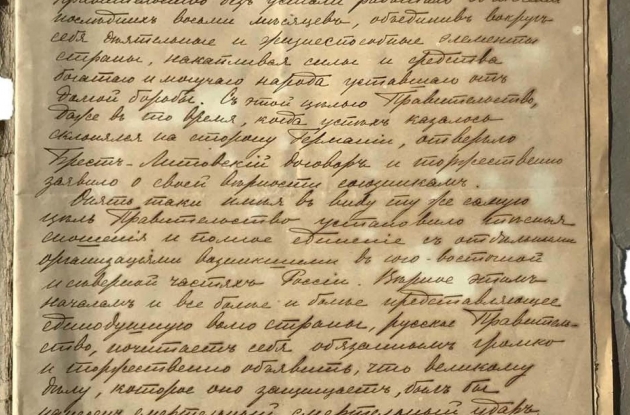 Правительство безъ устали работало въ теченіи
послѣднихъ восьми мѣсяцевъ, объединивъ вокругъ
себя дѣятельные и жизнеспособные элементы
страны, накапливая силы и средства
богатаго и могучаго народа уставшаго отъ
долгой борьбы. Съ этой цѣлью Правительство,
даже въ то время, когда успѣхъ казалось
склонялся на сторону Германіи, отвергло
Брестъ-Литовскій договоръ и торжественно
заявило о своей вѣрности союзникамъ.
Опять таки имѣя въ виду ту же самую
цѣль Правительство установило тѣсныя
сношенія и полное единеніе съ отдѣльными
организаціями возникшими въ юго-восточной
и сѣверной частяхъ Россіи. Вѣрное этимъ
началамъ и все болѣе и болѣе представляющее
единодушную волю страны, русское Правитель-
ство, почитаетъ себя обязаннымъ громко
и торжественно объявить, что великому
дѣлу, которое оно защищаетъ, былъ бы
нанесенъ смертельный ударъ